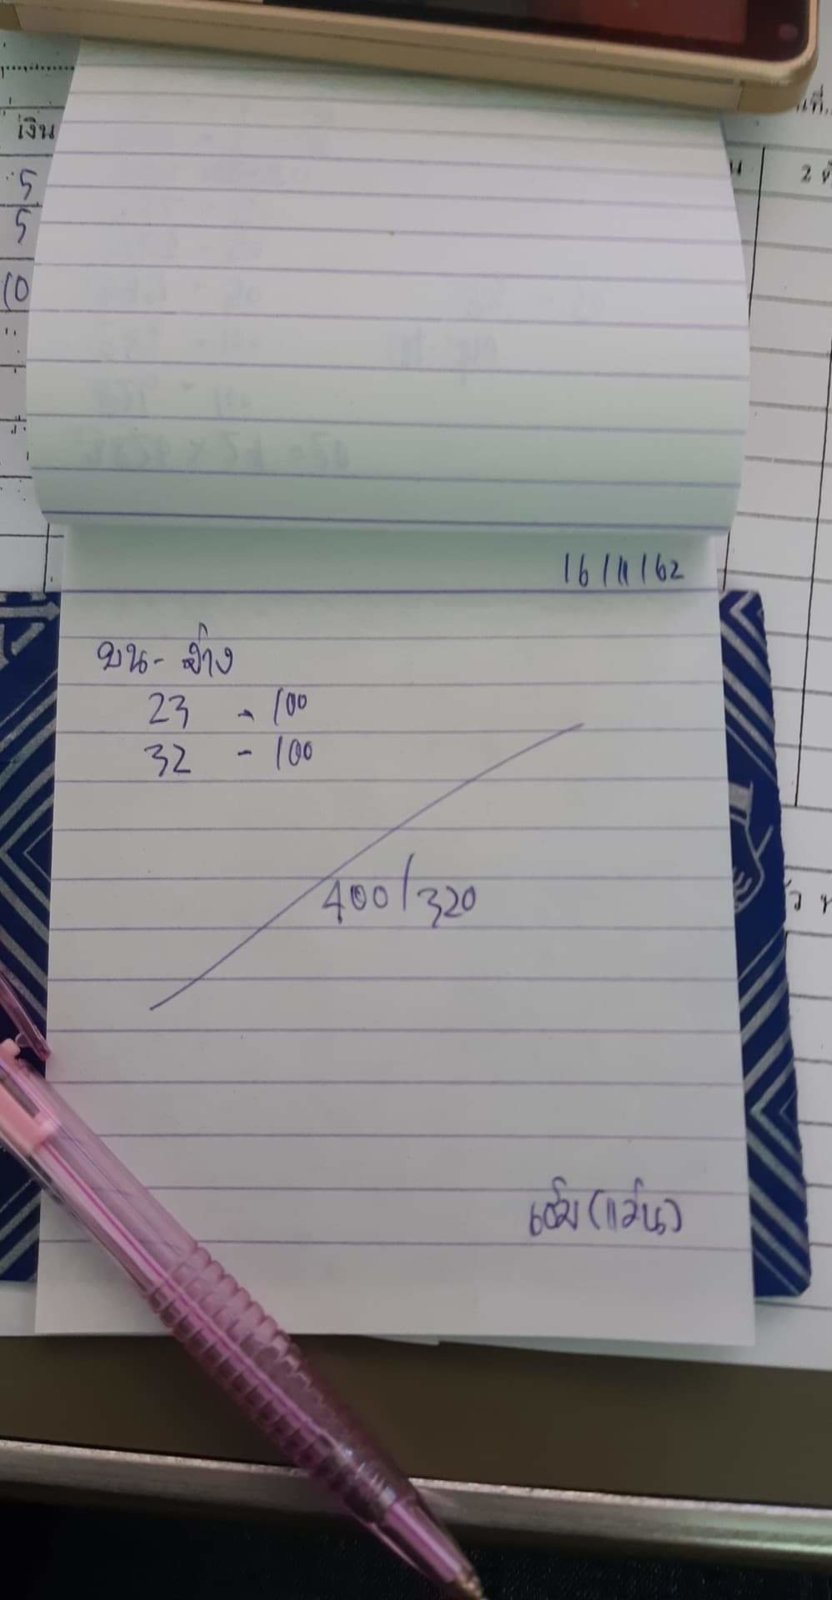 เงิน
5
5
10
2 ตั
16/11/62
บน - ล่าง
23 - 100
32 - 100
400/320
(แว่น)